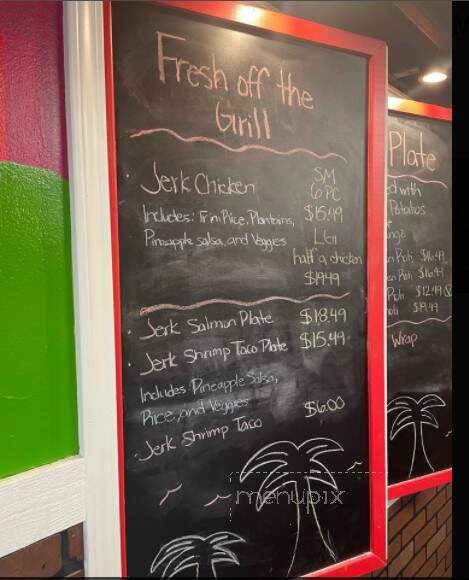 Fresh off the
Grill
Jerk Chicken
SM
6 PC
$15.49
Includes: Trini Rice, Plantains,
Pineapple salsa, and Veggies
LG
half a chicken
$19.49
Jerk Salmon Plate $18.49
Jerk Shrimp Taco Plate $15.49
Includes: Pineapple Salsa,
Rice, and Veggies
Jerk Shrimp Taco $6.00
menupix
Plate
ed with
Potatoes
Roti $16.49
Roti $16.49
Roti $12.49
$19.49
Wrap